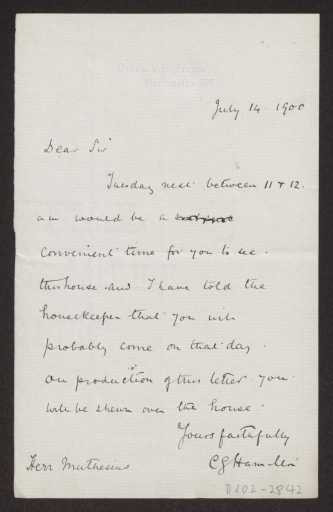 July 14. 1900
Dear Sir
Tuesday next between 11 & 12.
am would be a
convenient time for you to see
this house and I have told the
housekeeper that you will
probably come on that day.
On production of this letter you
will be shewn over the house.
Yours faithfully
C G Hamilton
Herr Muthesius
D102-2842